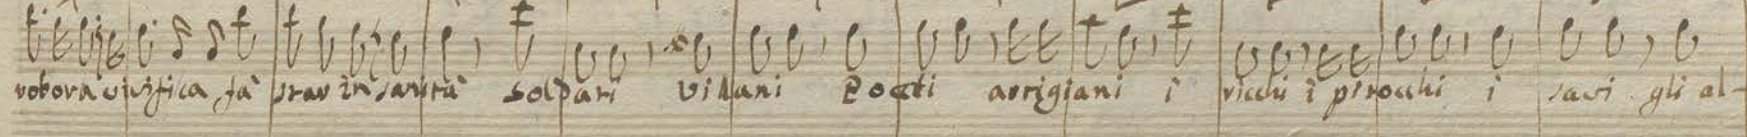 robora vivifica fà star in sanità soldati villani Poeti artigiani i ricchi i pitocchi i savi gli al-